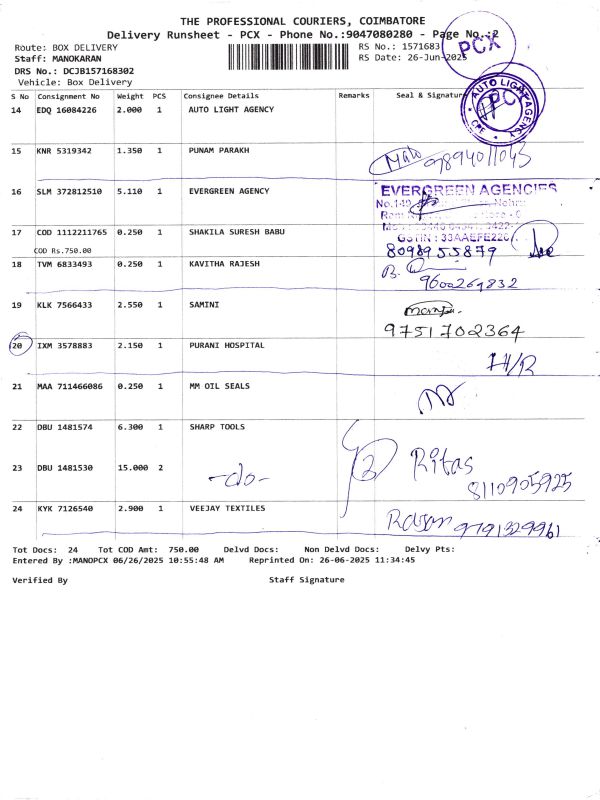 THE PROFESSIONAL COURIERS, COIMBATORE
Delivery Runsheet - PCX - Phone No.:9047080280 - Page No.:2
Route: BOX DELIVERY
RS No.: 1571683
PCX
Staff: MANOKARAN
RS Date: 26-Jun-2025
DRS No.: DCJB157168302
Vehicle: Box Delivery
S No Consignment No Weight PCS Consignee Details Remarks Seal & Signature
14 EDQ 16084226 2.000 1 AUTO LIGHT AGENCY
AUTO LIGHT AGENCY
15 KNR 5319342 1.350 1 PUNAM PARAKH
9894011043
16 SLM 372812510 5.110 1 EVERGREEN AGENCY
EVERGREEN AGENCIES
No.149
GSTIN : 33AAEFE220
17 COD 1112211765 0.250 1 SHAKILA SURESH BABU
8098955879
COD Rs.750.00
18 TVM 6833493 0.250 1 KAVITHA RAJESH
9600269832
19 KLK 7566433 2.550 1 SAMINI
9751702364
20 IXM 3578883 2.150 1 PURANI HOSPITAL
H/R
21 MAA 711466086 0.250 1 MM OIL SEALS
22 DBU 1481574 6.300 1 SHARP TOOLS
Ritas
23 DBU 1481530 15.000 2 -do-
2
8110905925
24 KYK 7126540 2.900 1 VEEJAY TEXTILES
9791329961
Tot Docs: 24 Tot COD Amt: 750.00 Delvd Docs: Non Delvd Docs: Delvy Pts:
Entered By :MANOPCX 06/26/2025 10:55:48 AM Reprinted On: 26-06-2025 11:34:45
Verified By Staff Signature